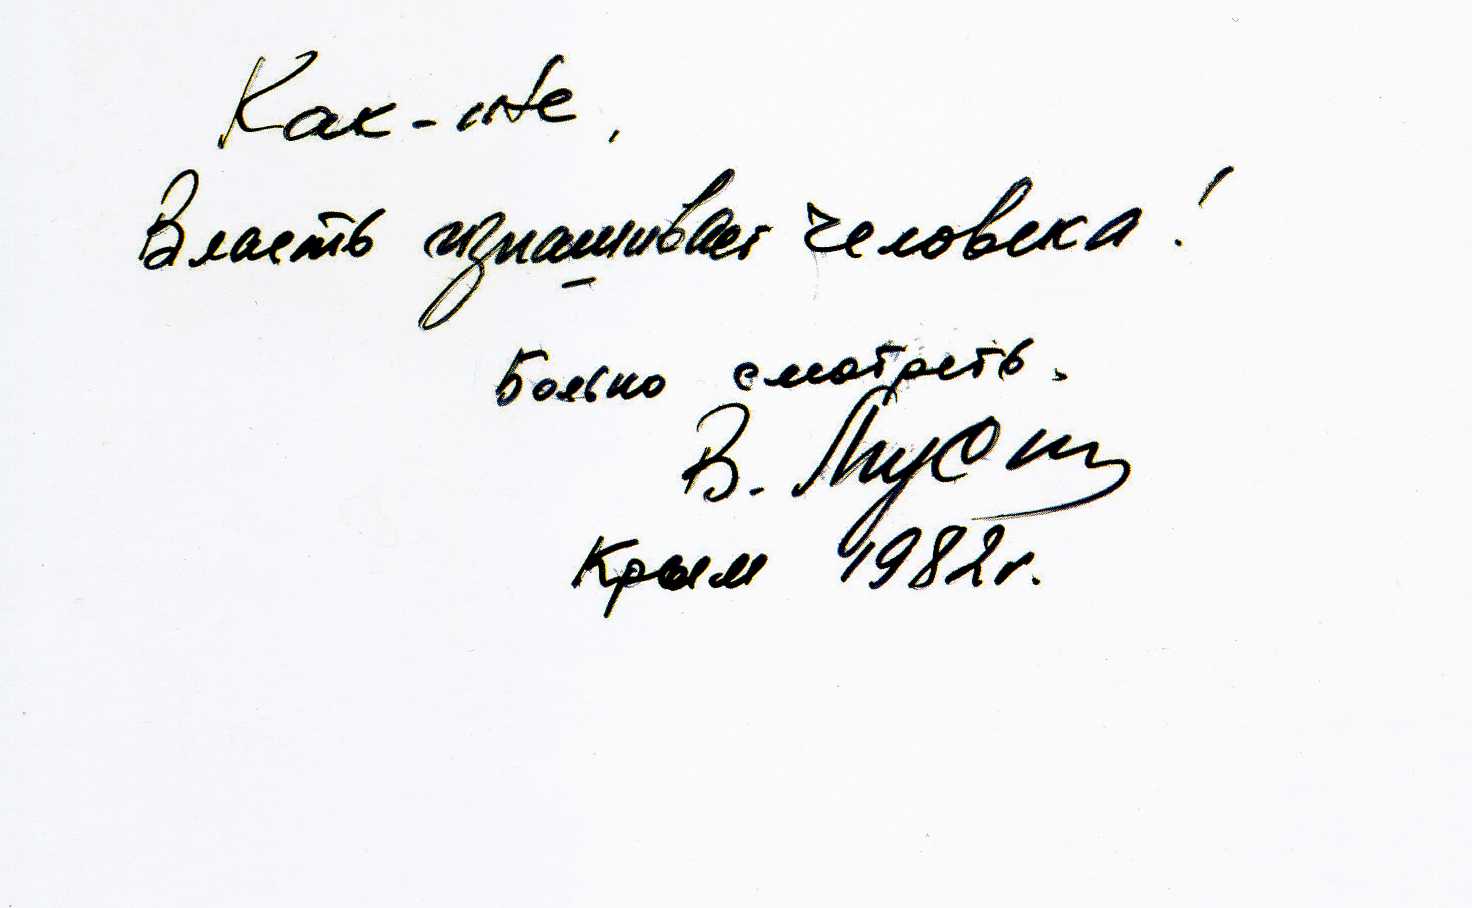 Как-же,
Власть изнашивает человека!
Больно смотреть.
В. Мусэ
Крым 1982г.